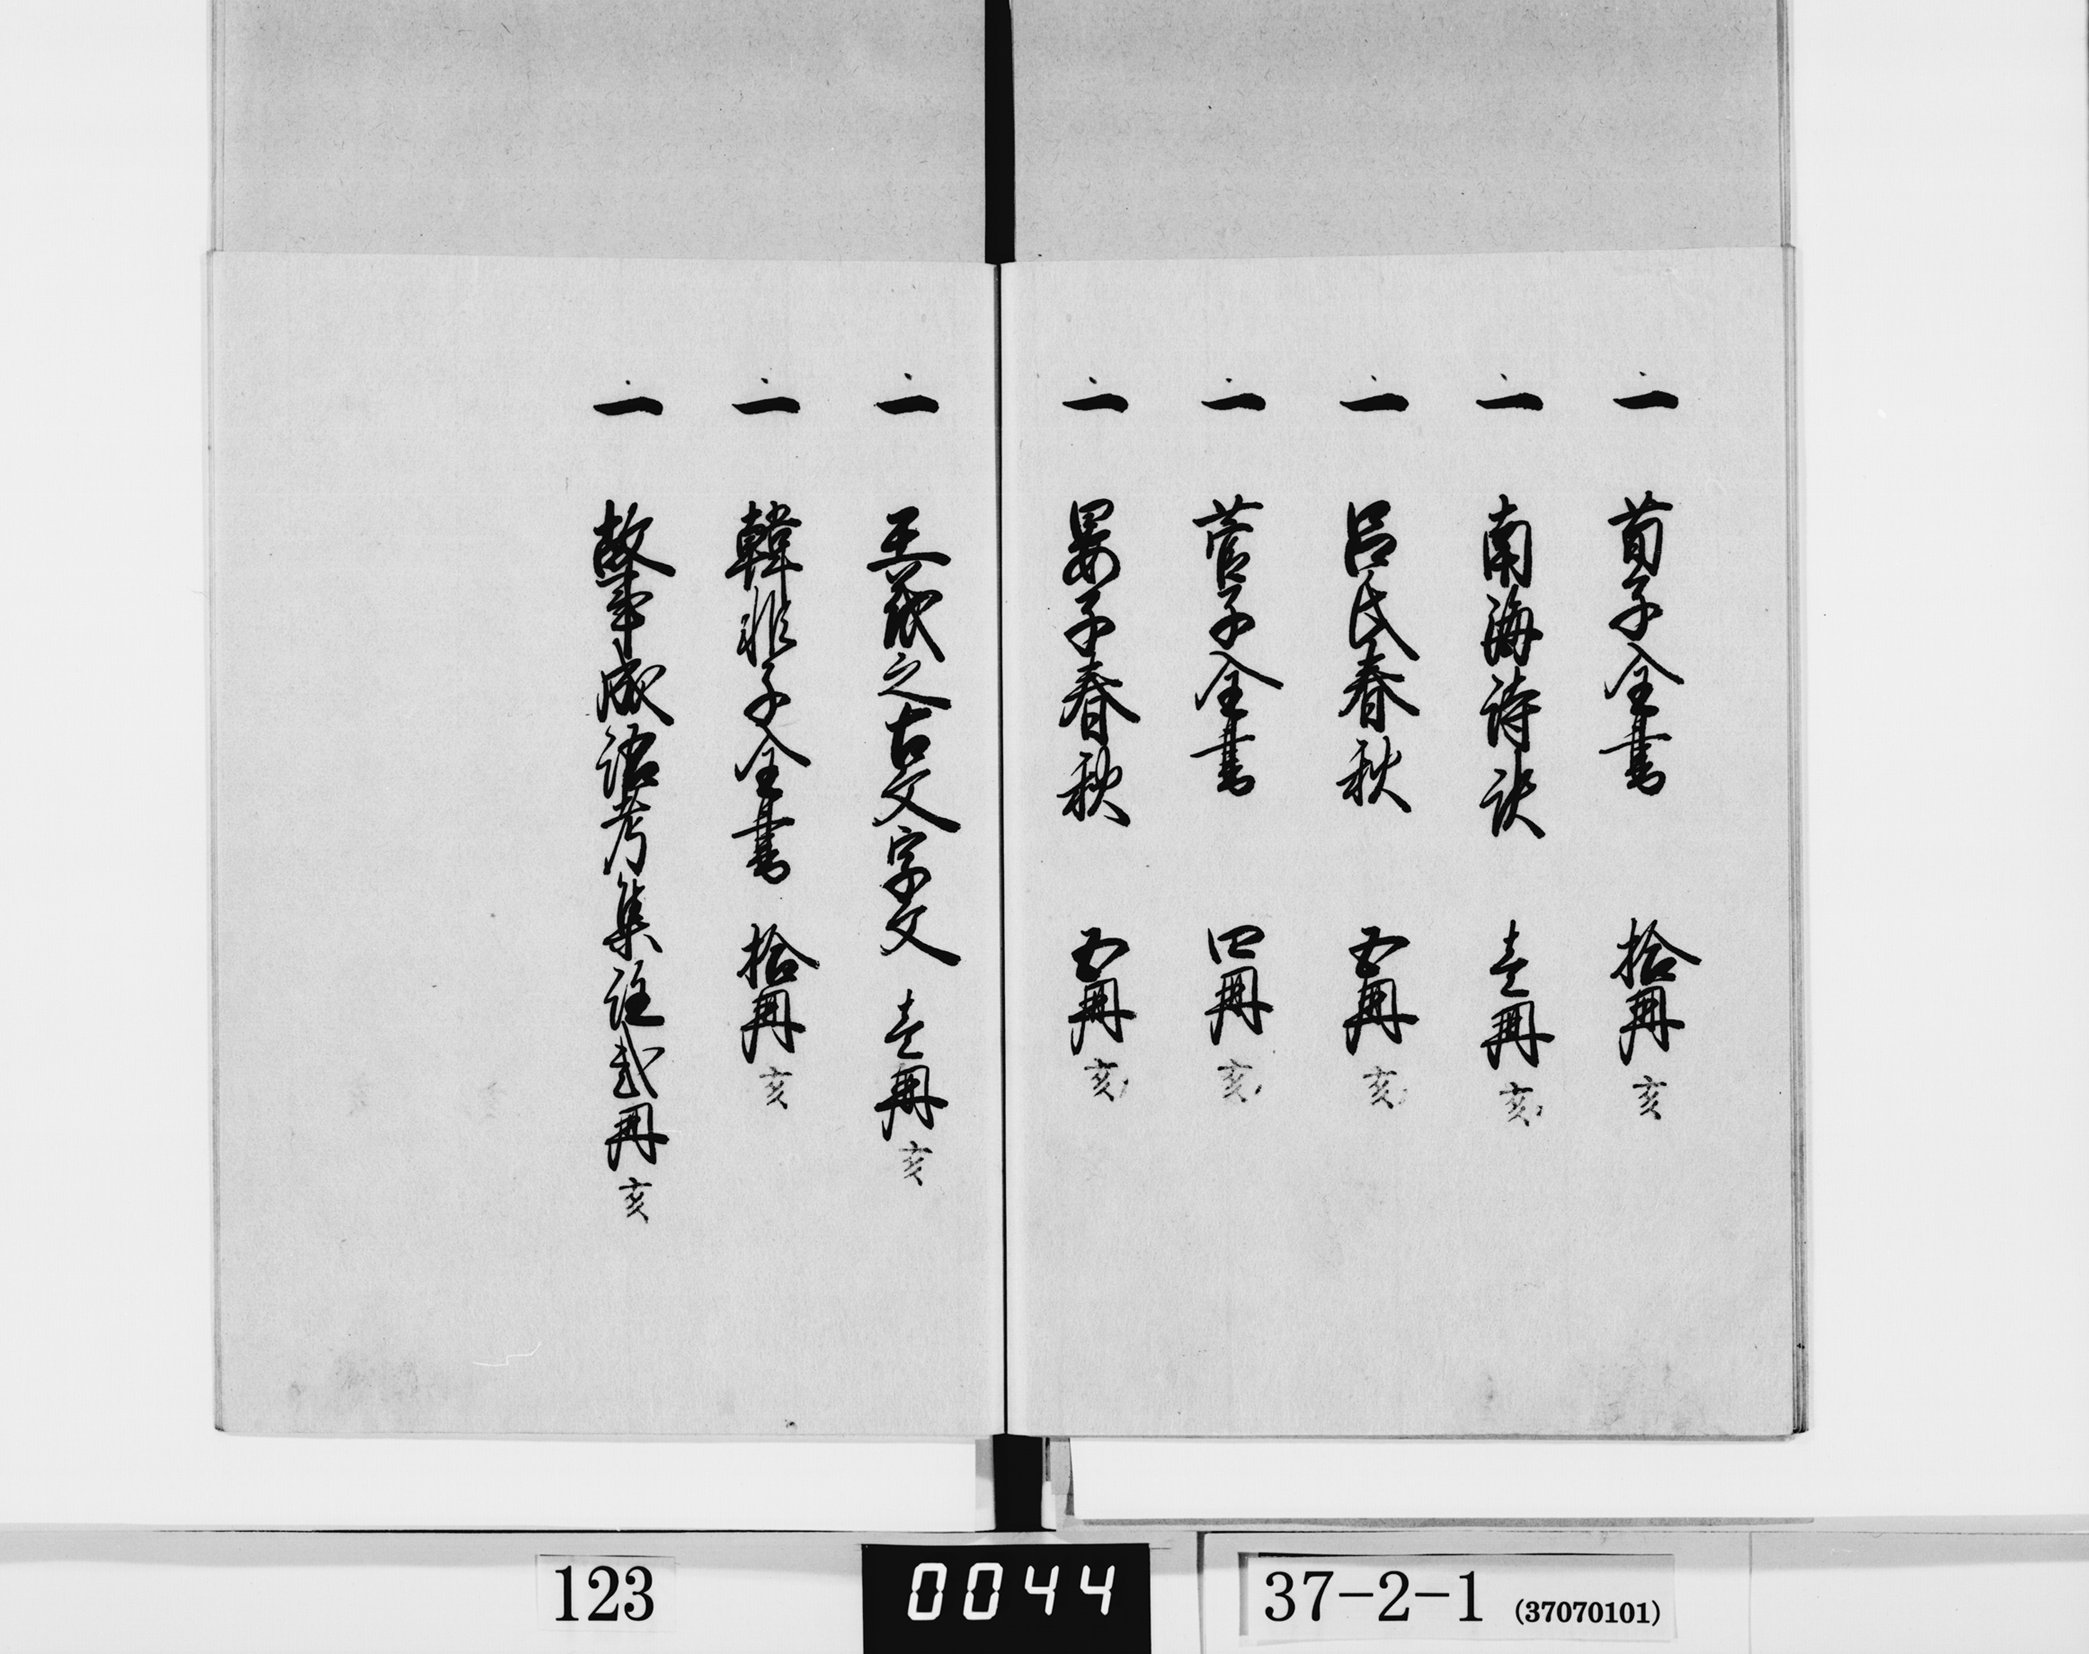 一 荀子全書 拾冊 亥
一 南海詩訣 壱冊 亥
一 呂氏春秋 五冊 亥
一 菅子全書 四冊 亥
一 晏子春秋 五冊 亥
一 王羲之古文字文 壱冊 亥
一 韓非子全書 拾冊 亥
一 故事成語考集註 弐冊 亥
123
0044
37-2-1 (37070101)